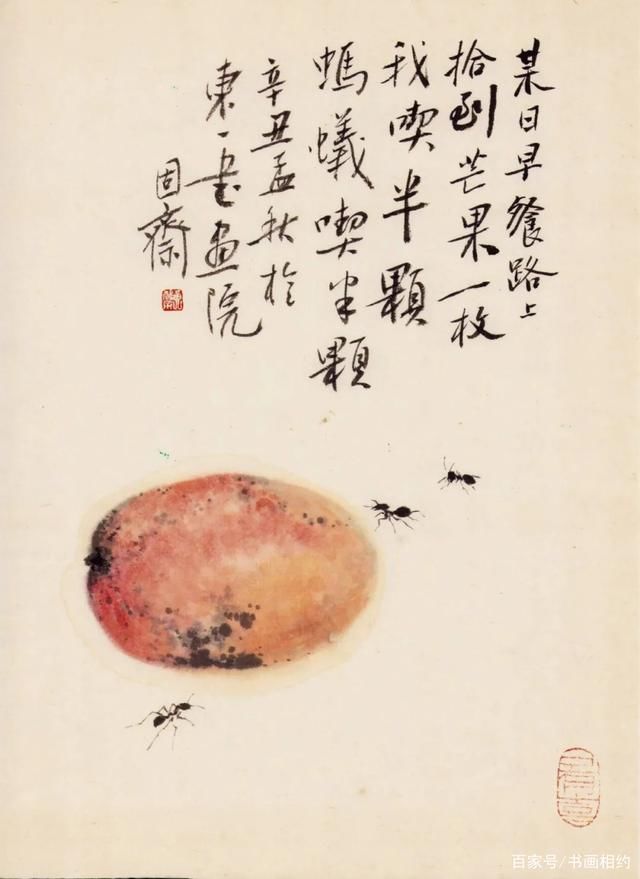 某日早餐路上
拾到芒果一枚
我喫半顆
螞蟻喫半顆
辛丑孟秋於
東一書画院
固齋
百家号/书画相约